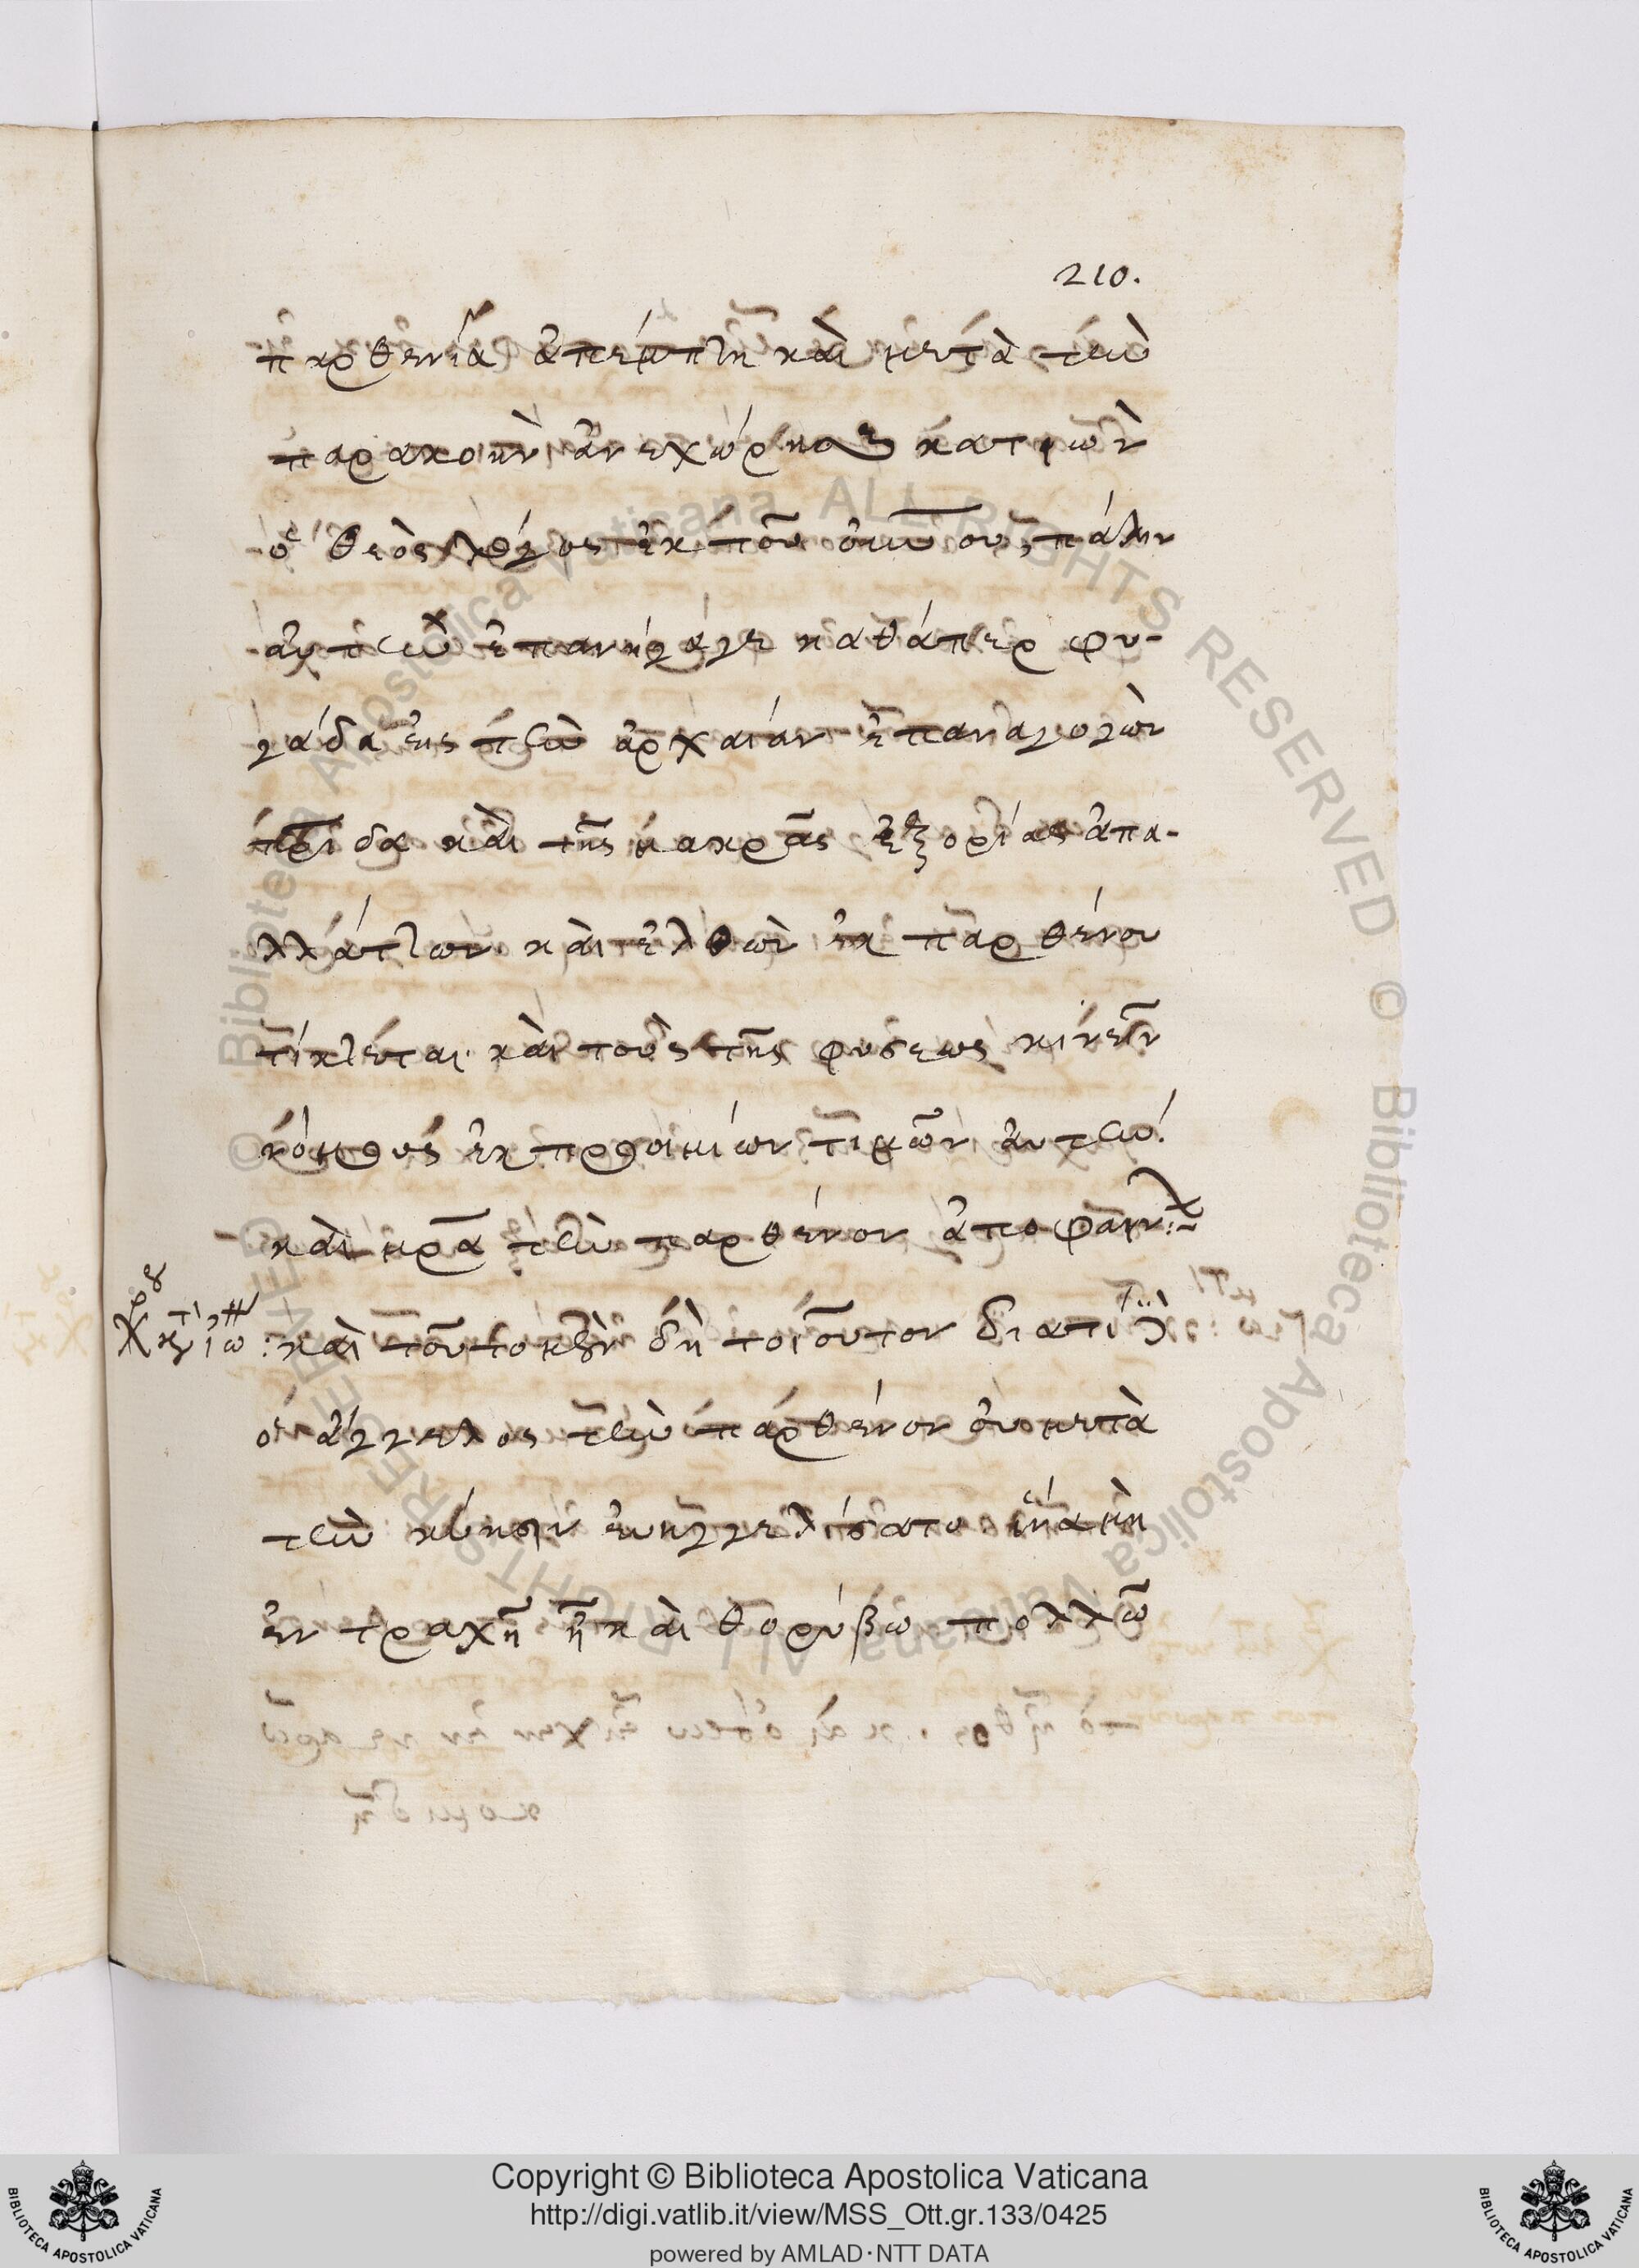 210.
παρθενία ἀπέμπτη καὶ μετὰ τὴν
παρακοὴν ἀνεχώρησε κατιὼν
ὁ θεὸς λόγος ἐκ τοῦ οὐνου, πάλιν
αὐτὴν ἐπανήγαγε καθάπερ φυ-
γάδα εἰς τὴν ἀρχαίαν ἐπαναγαγὼν
πρίδα καὶ τῆς μακρᾶς ἐξορίας ἀπα-
λλάττων καὶ ἐλθὼν ἐκ παρθένου
τίκτεται καὶ τοὺς τῆς φύσεως κινεῖν
νόμους ἐκ προοιμίων τιμῶν αὐτὴν
καὶ μρα τὴν παρθένον ἀποφαίν
καὶ τοῦτο μὲν δὴ τοιοῦτον διατί
ὁ ἄγγελος τὴν παρθένον οὐ μετὰ
τὴν κύησιν εὐηγγελίσατο ἵνα μὴ
ἐν τραχῆ ἦ καὶ θορύβω πολλῶ
Copyright © Biblioteca Apostolica Vaticana
http://digi.vatlib.it/view/MSS_Ott.gr.133/0425
powered by AMLAD·NTT DATA
BIBLIOTECA APOSTOLICA VATICANA
BIBLIOTECA APOSTOLICA VATICANA
© Biblioteca Apostolica Vaticana ALL RIGHTS RESERVED
© Biblioteca Apostolica Vaticana ALL RIGHTS RESERVED